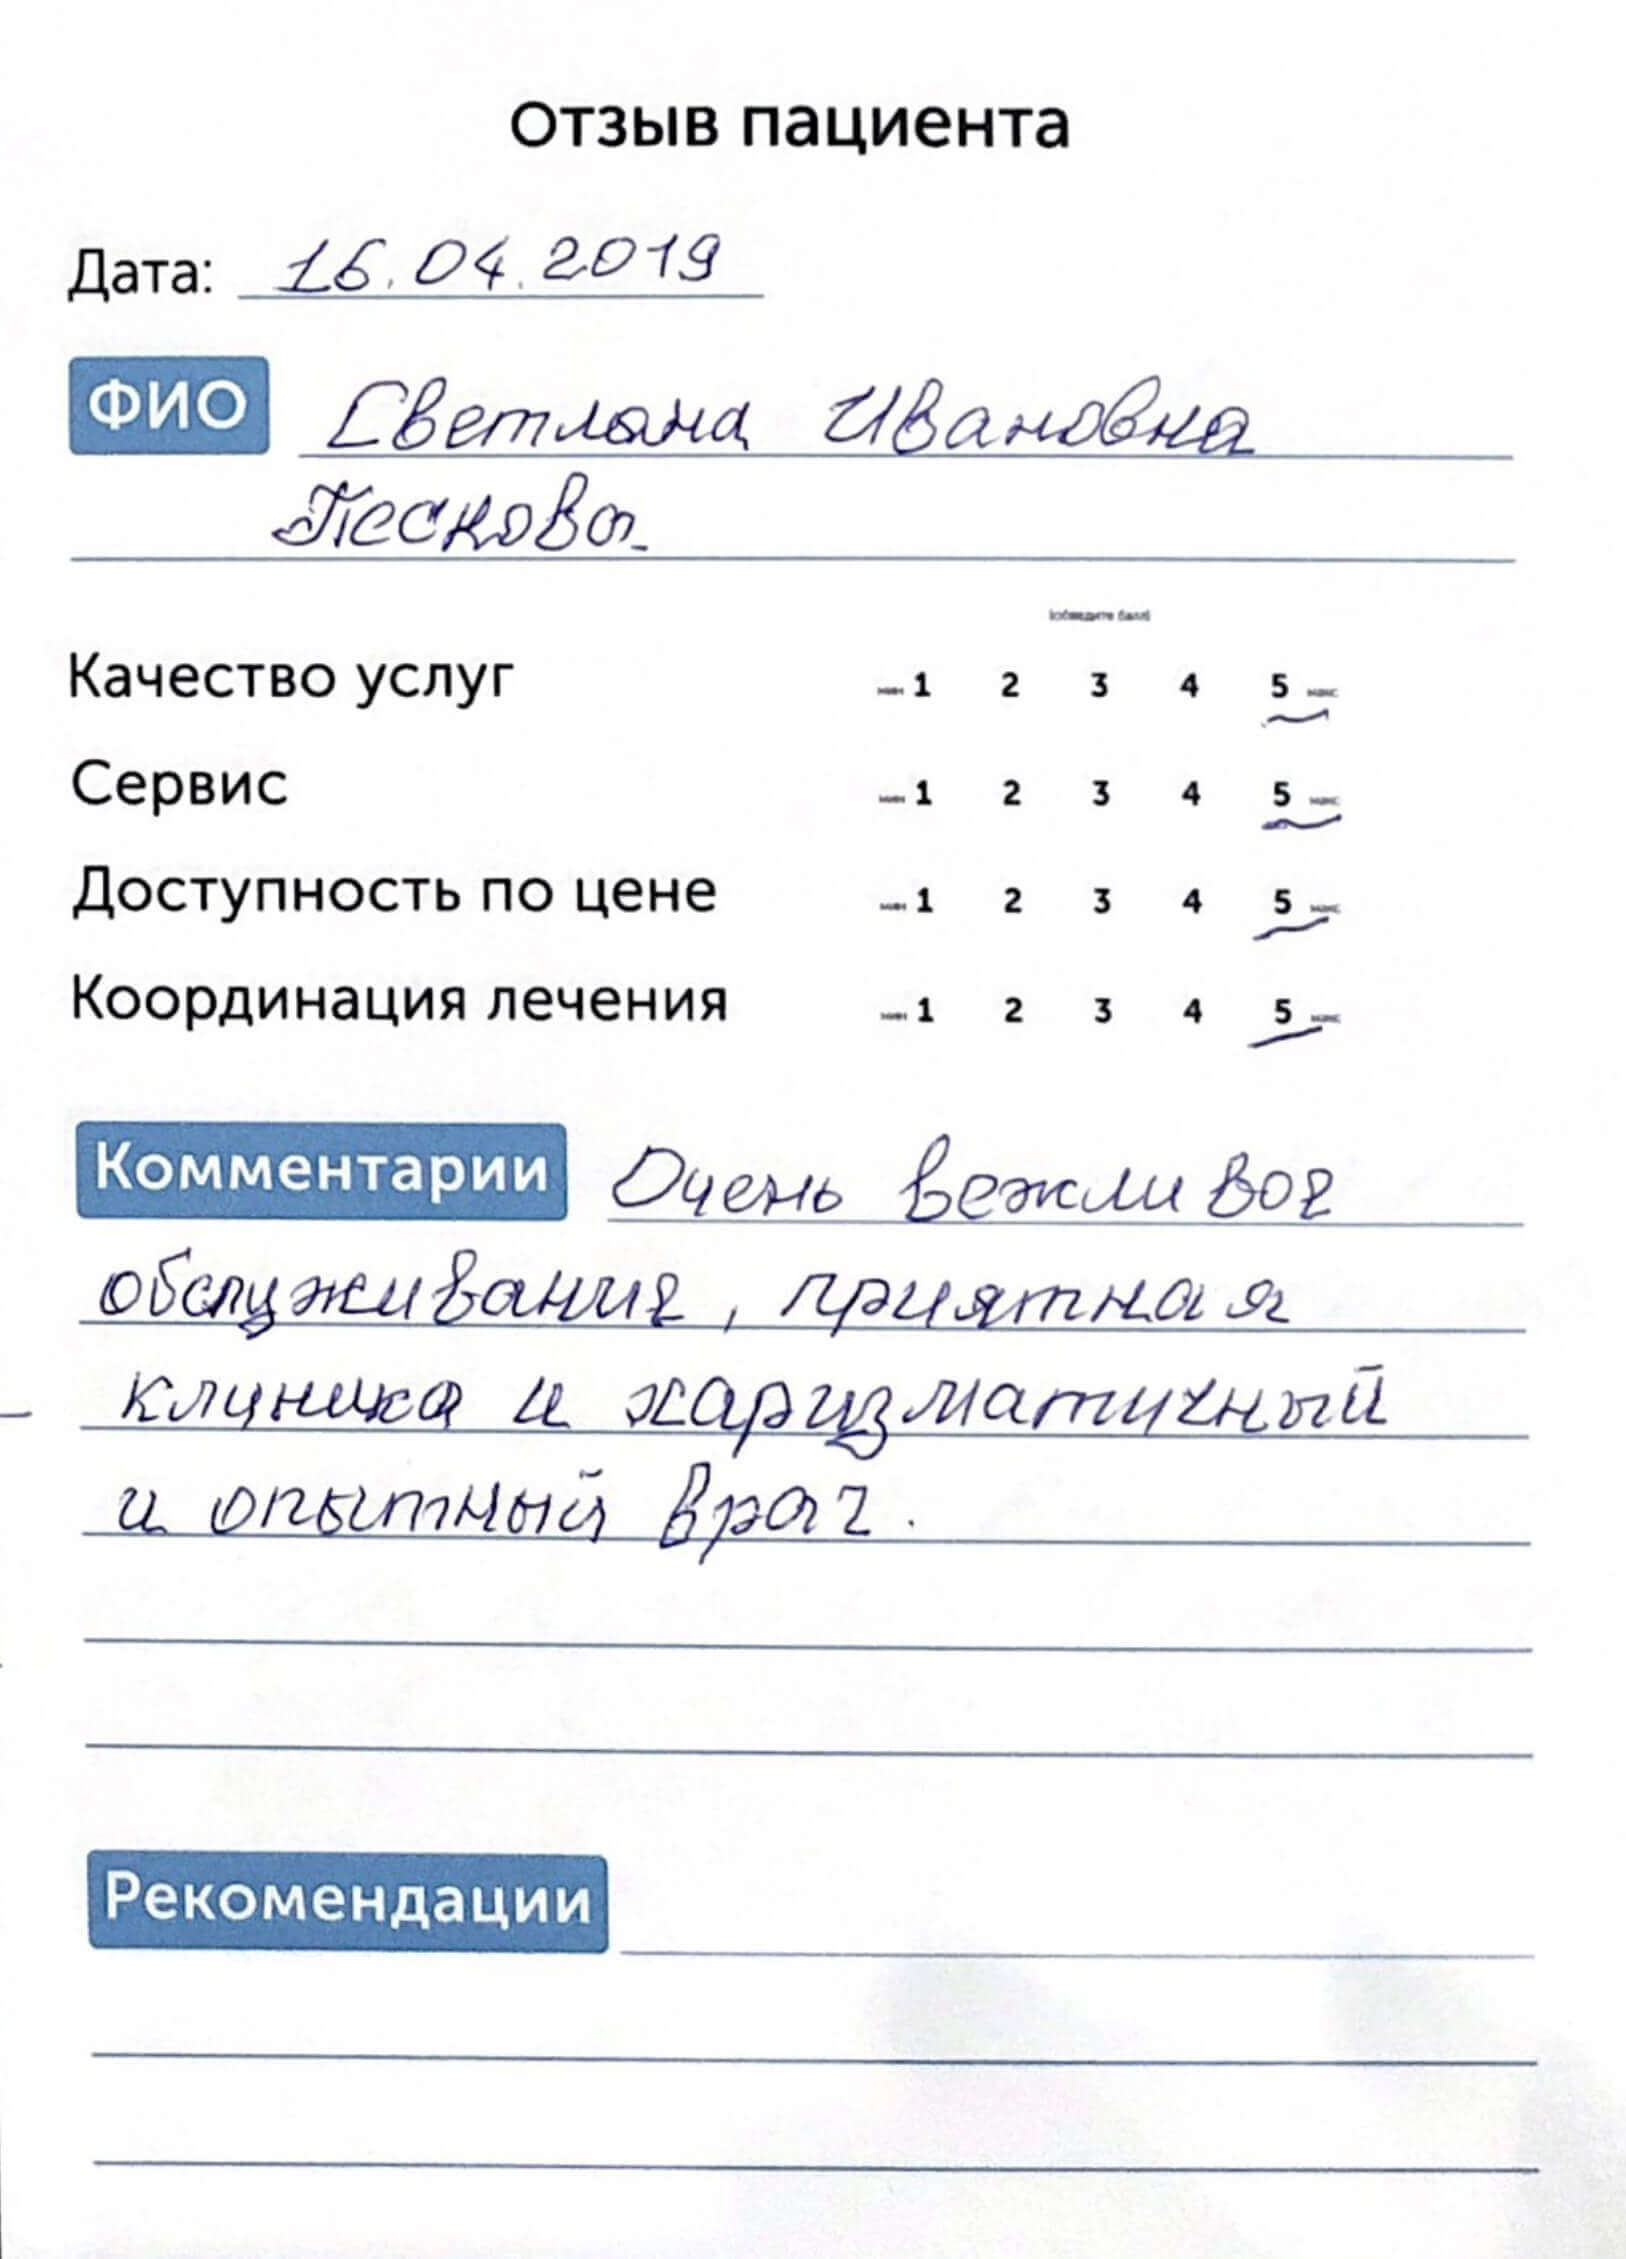 Отзыв пациента
Дата: 16.04.2019
ФИО Светлана Ивановна
Пескова
(обведите балл)
Качество услуг мин 1 2 3 4 5 макс
Сервис мин 1 2 3 4 5 макс
Доступность по цене мин 1 2 3 4 5 макс
Координация лечения мин 1 2 3 4 5 макс
Комментарии Очень вежливое
обслуживание, приятная
клиника и харизматичный
и опытный врач.
Рекомендации